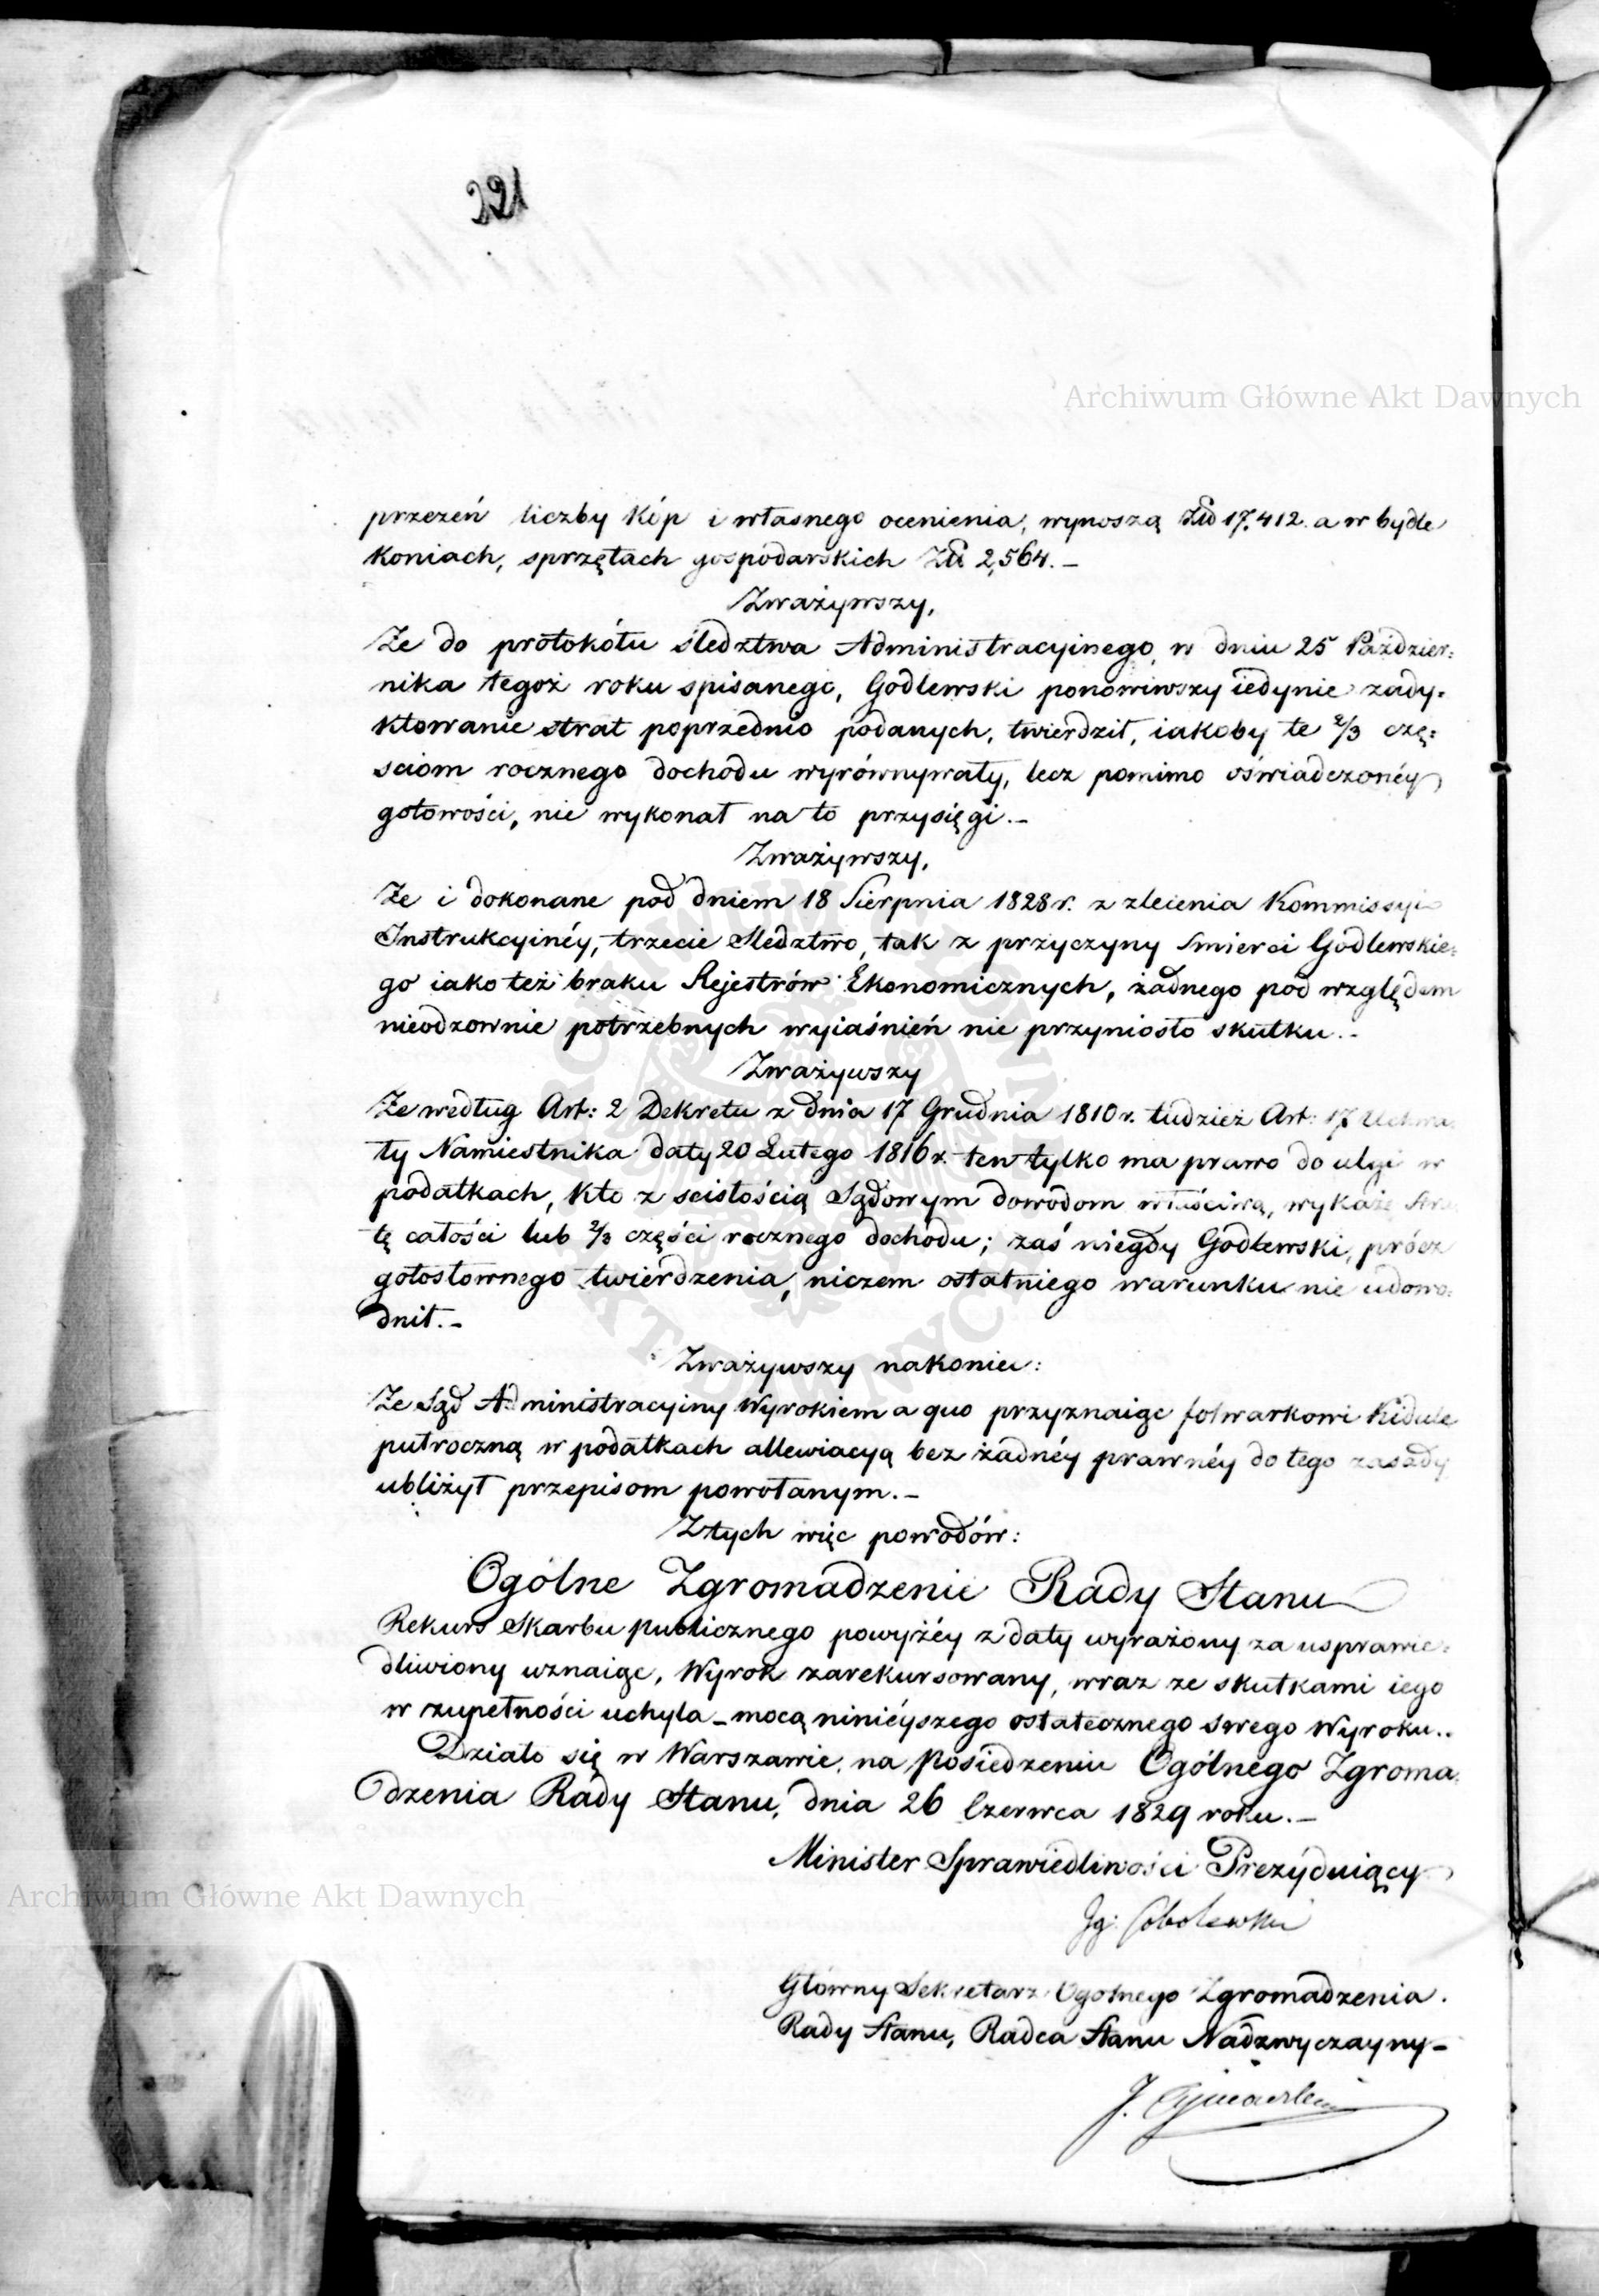 221
Archiwum Główne Akt Dawnych
przezeń liczby kóp i własnego ocenienia, wynoszą Złł 17,412. a w bydle
koniach, sprzętach gospodarskich Złł 2,564.–
Zważywszy,
Że do protokółu śledztwa Administracyinego, w dniu 25 Paździer:
nika tegoż roku spisanego, Godlewski ponowiwszy iedynie zady:
ktowanie strat poprzednio podanych, twierdził, iakoby te 2/3 czę:
sciom rocznego dochodu wyrównywały, lecz pomimo oświadczonéy
gotowości, nie wykonał na to przysięgi.–
Zważywszy,
Że i dokonane pod dniem 18 Sierpnia 1828 r. z zlecenia Kommissyi
Instrukcyinéy, trzecie śledztwo, tak z przyczyny śmierci Godlewskie:
go iako też braku Rejestrów Ekonomicznych, żadnego pod względem
nieodzownie potrzebnych wyiaśnień nie przyniosło skutku.–
Zważywszy
Że według Art: 2 Dekretu z dnia 17 Grudnia 1810 r. tudzież Art: 17 Uchwa:
ły Namiestnika daty 20 Lutego 1816 r. ten tylko ma prawo do ulgi w
podatkach, kto z scisłością Sądowym dowodom właściwą, wykaże stra
tę całości lub 2/3 części rocznego dochodu; zaś niegdy Godlewski, prócz
gołosłownego twierdzenia, niczem ostatniego warunku nie udowo:
dnił.–
Zważywszy nakoniec:
Że Sąd Administracyiny Wyrokiem a quo przyznaiąc folwarkowi Kidule
półroczną w podatkach allewiacyą bez żadnéy prawnéy do tego zasady
ubliżył przepisom powołanym.–
Z tych więc powodów:
Ogólne Zgromadzenie Rady Stanu
Rekurs Skarbu publicznego powyżéy z daty wyrażony za usprawie:
dliwiony uznaiąc, Wyrok zarekursowany, wraz ze skutkami iego
w zupełności uchyla – mocą ninieyszego ostatecznego swego Wyroku..
Działo się w Warszawie, na posiedzeniu Ogólnego Zgroma:
dzenia Rady Stanu, dnia 26 Czerwca 1829 roku.–
Minister Sprawiedliwości Prezyduiący
Archiwum Główne Akt Dawnych
Ig: Sobolewski
Główny Sekretarz Ogólnego Zgromadzenia.
Rady Stanu, Radca Stanu Nadzwyczayny–
J.